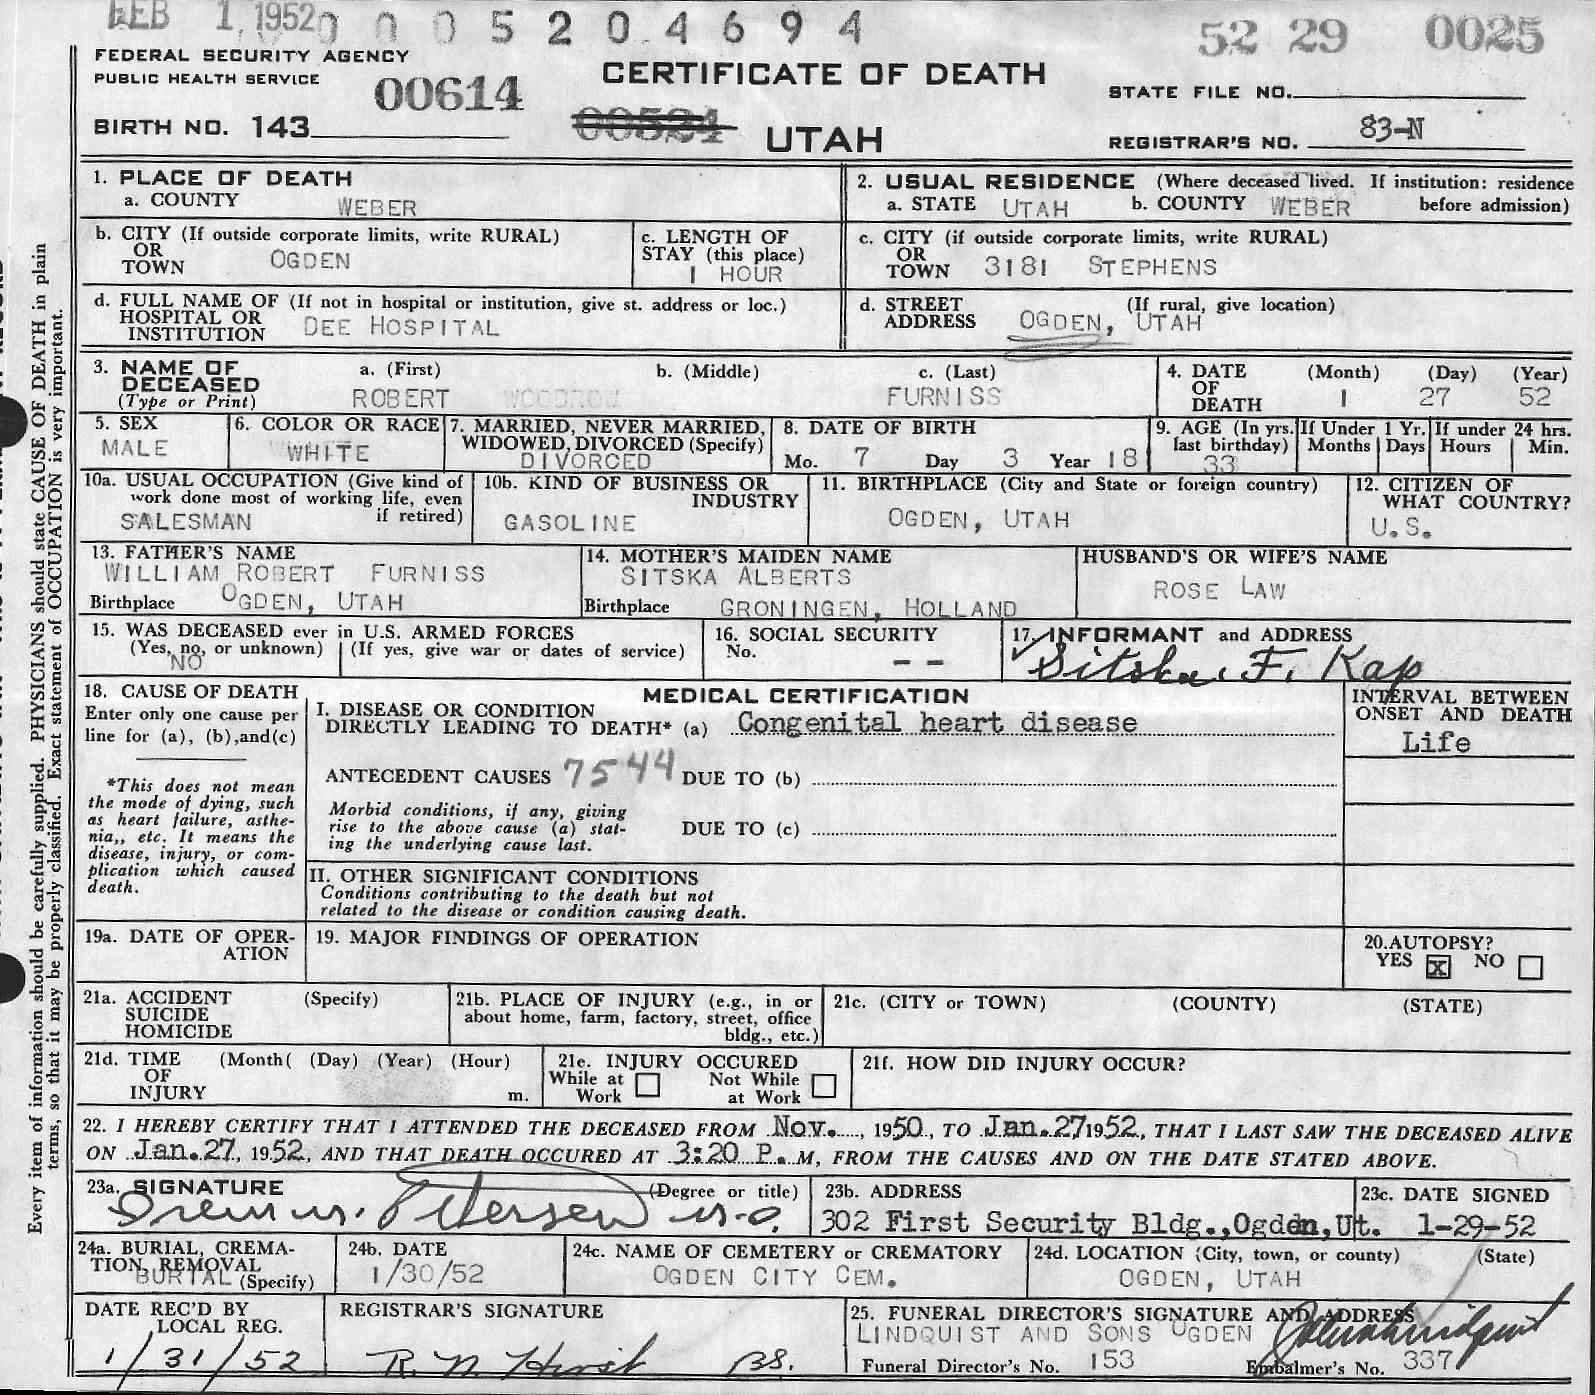 FEB 1, 1952 0 0 0 5 2 0 4 6 9 4 52 29 0025
FEDERAL SECURITY AGENCY
PUBLIC HEALTH SERVICE
00614
CERTIFICATE OF DEATH
STATE FILE NO.
BIRTH NO. 143
00524
UTAH
REGISTRAR'S NO. 83-N
1. PLACE OF DEATH
a. COUNTY WEBER
2. USUAL RESIDENCE (Where deceased lived. If institution: residence
a. STATE UTAH b. COUNTY WEBER before admission)
b. CITY (If outside corporate limits, write RURAL)
OR
TOWN OGDEN
c. LENGTH OF
STAY (this place)
1 HOUR
c. CITY (if outside corporate limits, write RURAL)
OR
TOWN 3181 STEPHENS
d. FULL NAME OF (If not in hospital or institution, give st. address or loc.)
HOSPITAL OR
INSTITUTION DEE HOSPITAL
d. STREET (If rural, give location)
ADDRESS OGDEN, UTAH
3. NAME OF
DECEASED
(Type or Print)
a. (First) b. (Middle) c. (Last)
ROBERT WOODROW FURNISS
4. DATE
OF
DEATH
(Month) (Day) (Year)
1 27 52
5. SEX
MALE
6. COLOR OR RACE
WHITE
7. MARRIED, NEVER MARRIED,
WIDOWED, DIVORCED (Specify)
DIVORCED
8. DATE OF BIRTH
Mo. 7 Day 3 Year 18
9. AGE (In yrs.
last birthday)
33
If Under 1 Yr.
Months Days
If under 24 hrs.
Hours Min.
10a. USUAL OCCUPATION (Give kind of
work done most of working life, even
if retired)
SALESMAN
10b. KIND OF BUSINESS OR
INDUSTRY
GASOLINE
11. BIRTHPLACE (City and State or foreign country)
OGDEN, UTAH
12. CITIZEN OF
WHAT COUNTRY?
U.S.
13. FATHER'S NAME
WILLIAM ROBERT FURNISS
Birthplace OGDEN, UTAH
14. MOTHER'S MAIDEN NAME
SITSKA ALBERTS
Birthplace GRONINGEN, HOLLAND
HUSBAND'S OR WIFE'S NAME
ROSE LAW
15. WAS DECEASED ever in U.S. ARMED FORCES
(Yes, no, or unknown) (If yes, give war or dates of service)
NO
16. SOCIAL SECURITY
No.
– –
17. INFORMANT and ADDRESS
Sitska F. Kap
18. CAUSE OF DEATH
Enter only one cause per
line for (a), (b), and (c)
*This does not mean
the mode of dying, such
as heart failure, asthe-
nia,, etc. It means the
disease, injury, or com-
plication which caused
death.
MEDICAL CERTIFICATION
I. DISEASE OR CONDITION
DIRECTLY LEADING TO DEATH* (a) Congenital heart disease
ANTECEDENT CAUSES 7544 DUE TO (b)
Morbid conditions, if any, giving
rise to the above cause (a) stat-
ing the underlying cause last.
DUE TO (c)
II. OTHER SIGNIFICANT CONDITIONS
Conditions contributing to the death but not
related to the disease or condition causing death.
INTERVAL BETWEEN
ONSET AND DEATH
Life
19a. DATE OF OPER-
ATION
19. MAJOR FINDINGS OF OPERATION
20. AUTOPSY?
YES X NO
21a. ACCIDENT (Specify)
SUICIDE
HOMICIDE
21b. PLACE OF INJURY (e.g., in or
about home, farm, factory, street, office
bldg., etc.)
21c. (CITY or TOWN) (COUNTY) (STATE)
21d. TIME (Month( (Day) (Year) (Hour)
OF
INJURY m.
21e. INJURY OCCURED
While at Work Not While at Work
21f. HOW DID INJURY OCCUR?
22. I HEREBY CERTIFY THAT I ATTENDED THE DECEASED FROM Nov. , 1950, TO Jan. 27 1952, THAT I LAST SAW THE DECEASED ALIVE
ON Jan. 27, 1952, AND THAT DEATH OCCURED AT 3:20 P. M, FROM THE CAUSES AND ON THE DATE STATED ABOVE.
23a. SIGNATURE (Degree or title)
Petersen M.D.
23b. ADDRESS
302 First Security Bldg., Ogden, Ut.
23c. DATE SIGNED
1-29-52
24a. BURIAL, CREMA-
TION, REMOVAL
BURIAL (Specify)
24b. DATE
1/30/52
24c. NAME OF CEMETERY or CREMATORY
OGDEN CITY CEM.
24d. LOCATION (City, town, or county) (State)
OGDEN, UTAH
DATE REC'D BY
LOCAL REG.
1/31/52
REGISTRAR'S SIGNATURE
R. N. Hirst BS.
25. FUNERAL DIRECTOR'S SIGNATURE AND ADDRESS
LINDQUIST AND SONS OGDEN
Funeral Director's No. 153 Embalmer's No. 337
Every item of information should be carefully supplied. PHYSICIANS should state CAUSE OF DEATH in plain
terms, so that it may be properly classified. Exact statement of OCCUPATION is very important.